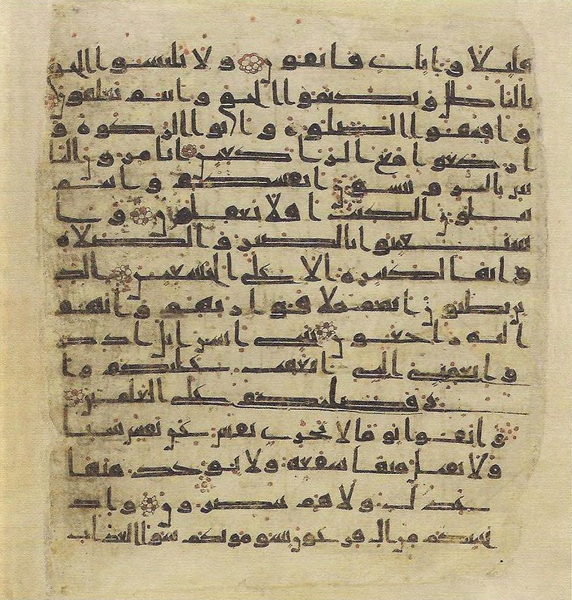 قليلا وايى فاتقون ولا تلبسوا الحق
بالباطل وتكتموا الحق وانتم تعلمون
واقيموا الصلوة واتوا الزكوة و
اركعوا مع الراكعين اتامرون النا
س بالبر وتنسون انفسكم وانتم
تتلون الكتب افلا تعقلون وا
ستعينوا بالصبر والصلاه
وانها لكبيرة الا على الخشعين الذ
ين يظنون انهم ملاقوا ربهم وانهم
اليه راجعون يبنى اسرايل اذكر
وا نعمتى التى انعمت عليكم وا
نى فضلتكم على العلمين
واتقوا يوما لا تجزى نفس عن نفس شيا
ولا يقبل منها شفعة ولا يوخذ منها
عدل ولا هم ينصرون واذ
نجينكم من ال فرعون يسومونكم سوا العذاب